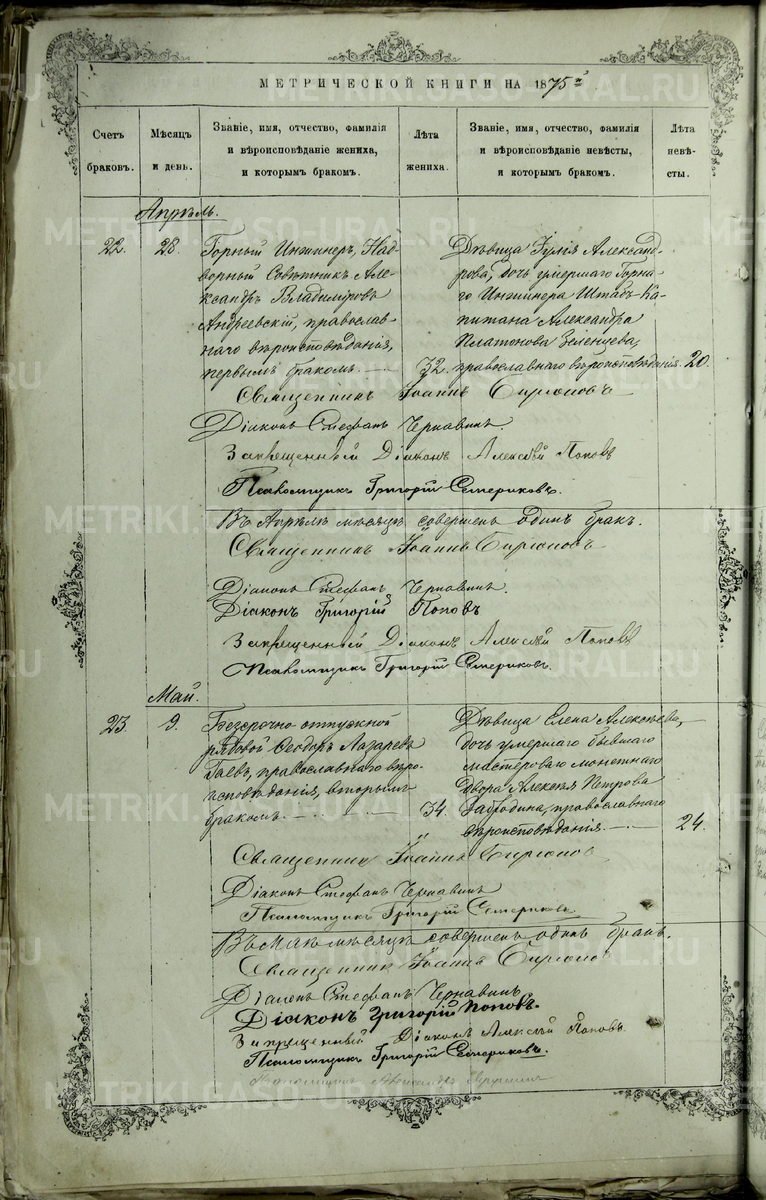 МЕТРИЧЕСКОЙ КНИГИ НА 1875й
Счетъ браковъ.
Мѣсяцъ и день.
Званіе, имя, отчество, фамилія и вѣроисповѣданіе жениха, и которымъ бракомъ.
Лѣта жениха.
Званіе, имя, отчество, фамилія и вѣроисповѣданіе невѣсты, и которымъ бракомъ.
Лѣта невѣсты.
Апрѣль.
22.
28.
Горный Инженеръ, Над-
ворный Совѣтникъ Але-
ксандръ Владиміровъ
Андреевскій, православ-
наго вѣроисповѣданія,
первымъ бракомъ.
32.
Дѣвица Юлія Александ-
рова, дочь умершаго Горна-
го Инженера Штабсъ-Ка-
питана Александра
Платонова Зеленцева,
православнаго вѣроисповѣданія.
20.
Священникъ Іоаннъ
Діаконъ Стефанъ Чернавинъ.
Запрещенный Діаконъ Алексѣй Поповъ
Псаломщикъ Григорій Семериковъ.
Въ Апрѣлѣ мѣсяцѣ совершенъ одинъ бракъ.
Священникъ Іоаннъ
Діаконъ Стефанъ Чернавинъ.
Діаконъ Григорій Поповъ
Запрещенный Діаконъ Алексѣй Поповъ
Псаломщикъ Григорій Семериковъ.
Май.
23.
9.
Безсрочно-отпускной
рядовой Ѳеодоръ Лазаревъ
Гаевъ, православнаго вѣро-
исповѣданія, вторымъ
бракомъ.
34.
Дѣвица Елена Алексѣева,
дочь умершаго бывшаго
мастероваго монетнаго
двора Алексѣя Петрова
православнаго
вѣроисповѣданія.
24.
Священникъ Іоаннъ
Діаконъ Стефанъ Чернавинъ
Псаломщикъ Григорій Семериковъ.
Въ Маѣ мѣсяцѣ совершенъ одинъ бракъ.
Священникъ Іоаннъ
Діаконъ Стефанъ Чернавинъ
Діаконъ Григорій Поповъ.
Запрещенный Діаконъ Алексѣй Поповъ.
Псаломщикъ Григорій Семериковъ.
METRIKI.GASO-URAL.RU